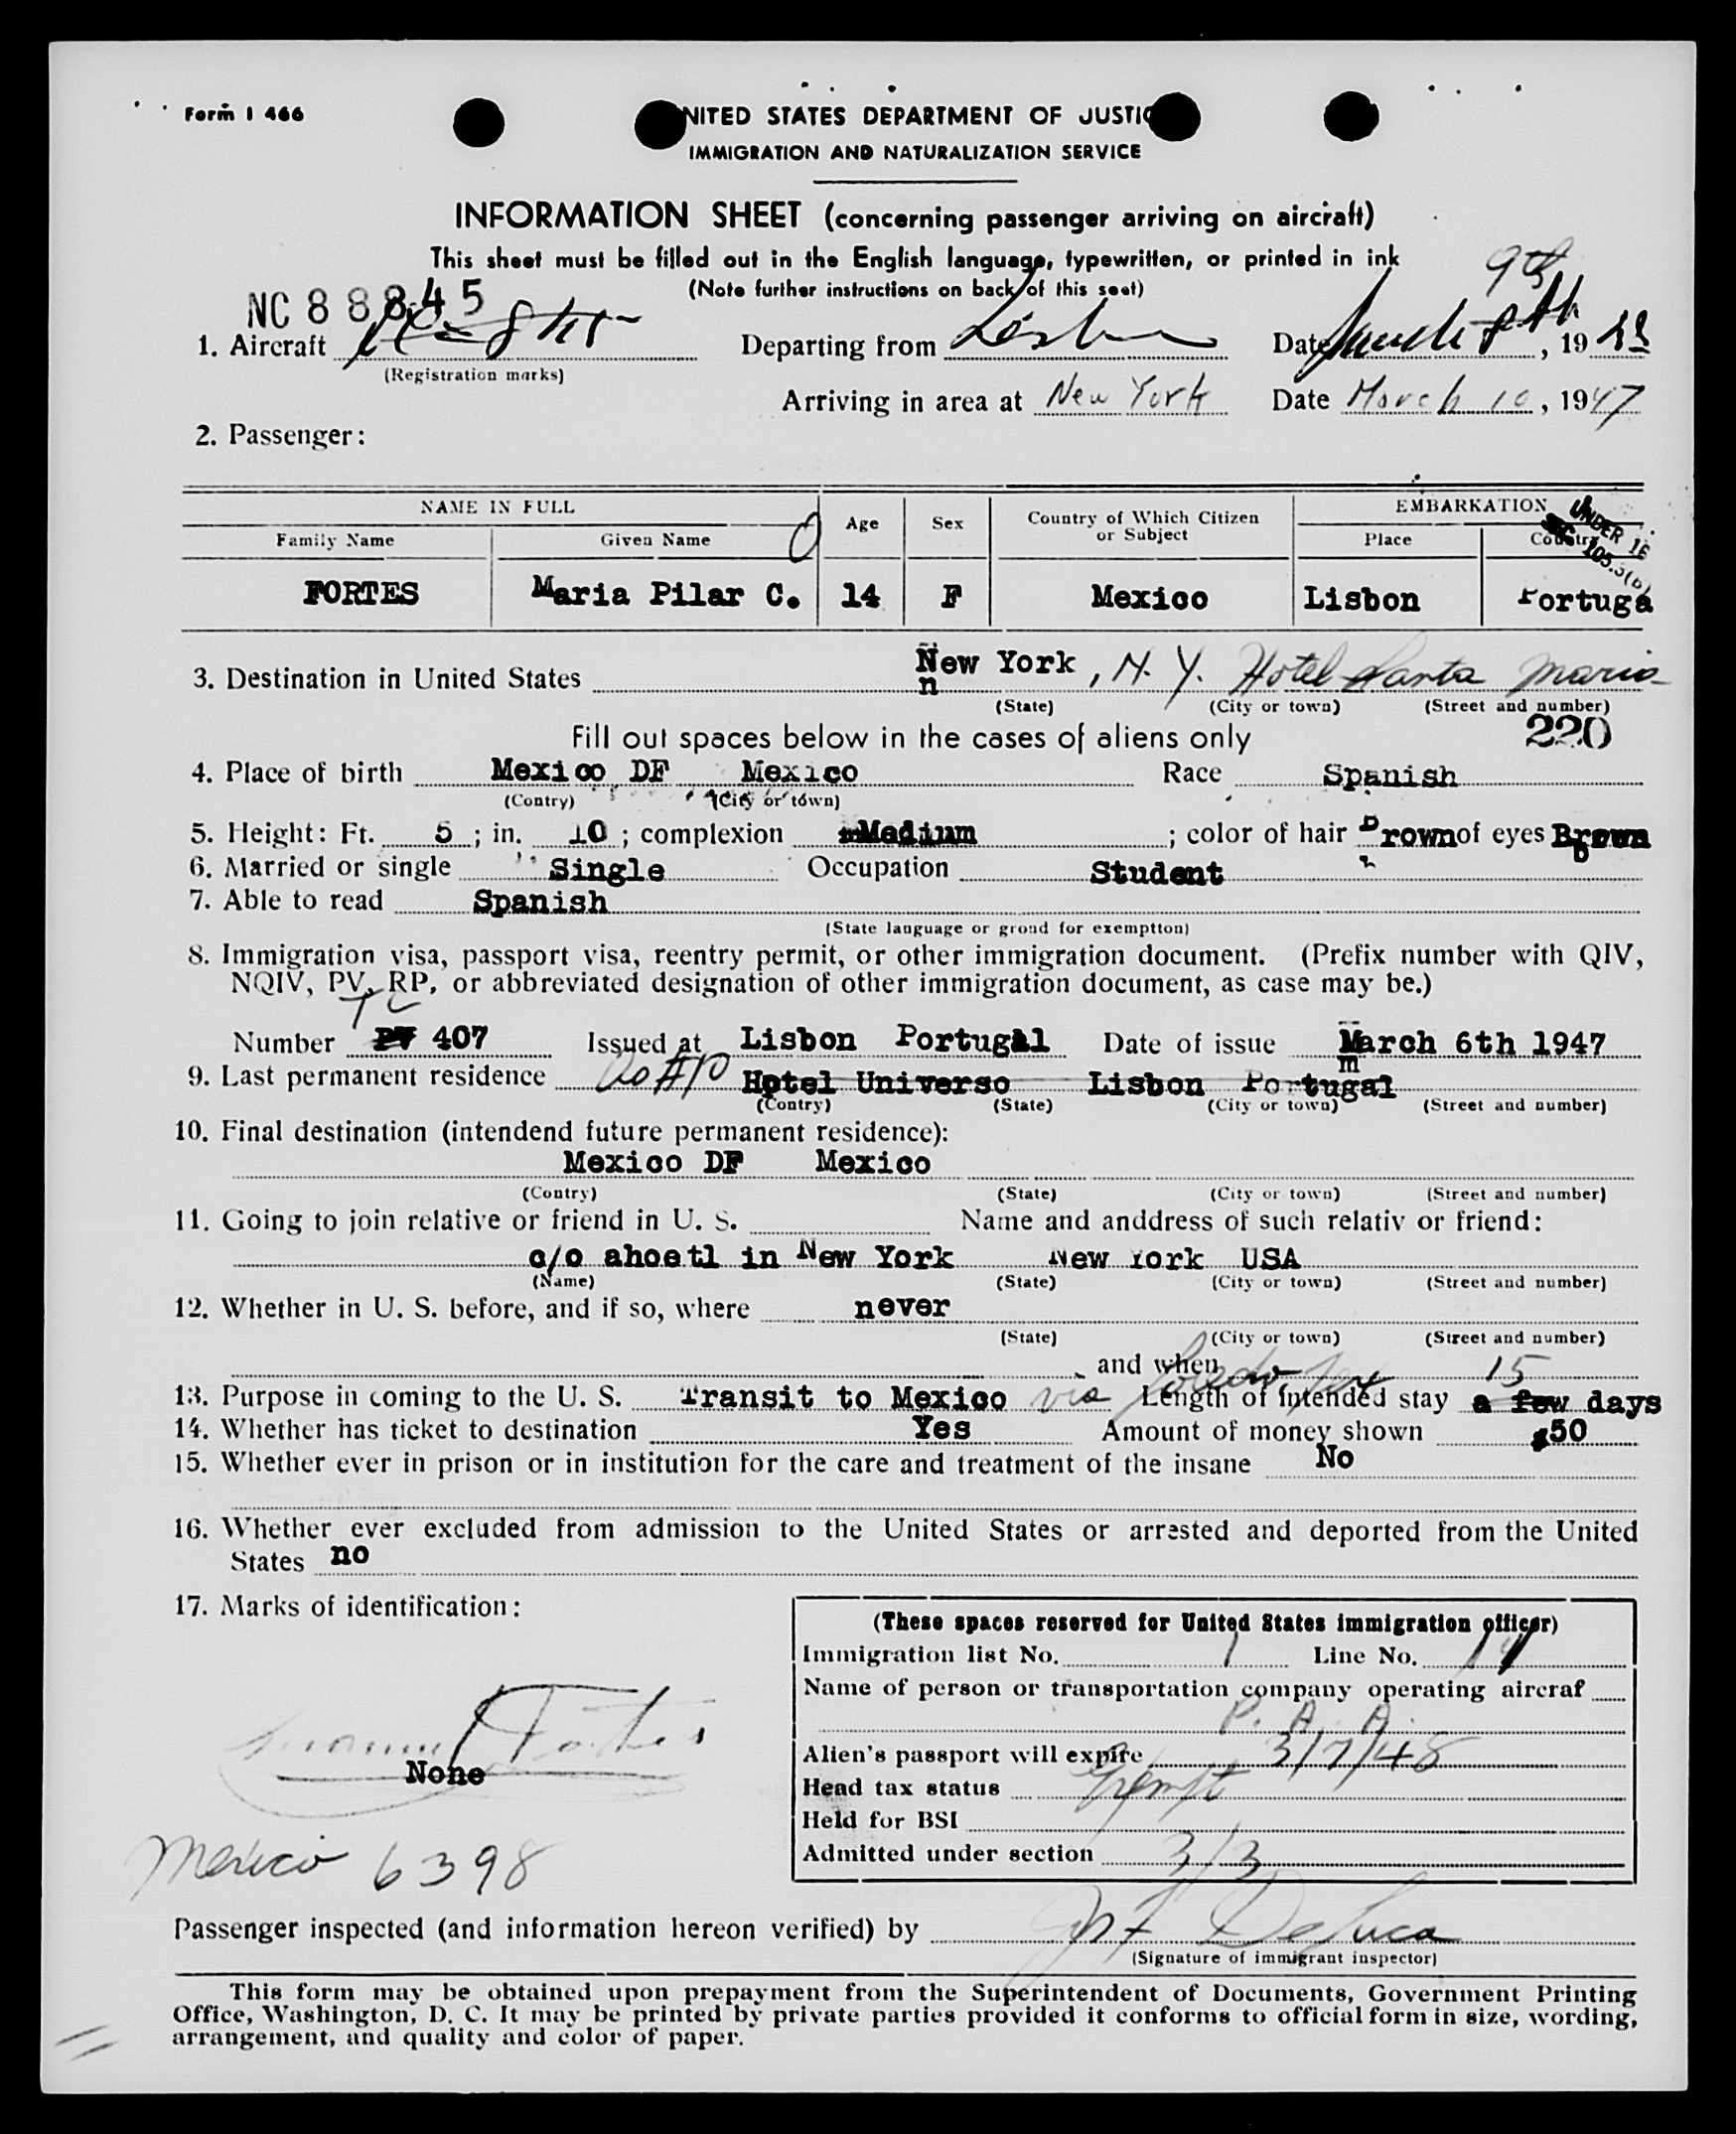 Form I 466
NITED STATES DEPARTMENT OF JUSTIC
IMMIGRATION AND NATURALIZATION SERVICE
INFORMATION SHEET (concerning passenger arriving on aircraft)
This sheet must be filled out in the English language, typewritten, or printed in ink
(Note further instructions on back of this seet)
9th
NC 88845
1. Aircraft Departing from Date 8th, 19
(Registration marks)
Arriving in area at New York Date March 10, 1947
2. Passenger:
NAME IN FULL Age Sex Country of Which Citizen or Subject EMBARKATION
Family Name Given Name Place Country
UNDER 16
SEC 105.3(b)
FORTES Maria Pilar C. 14 F Mexico Lisbon Portuga
3. Destination in United States New York, N. Y. Hotel Santa Maria
n
(State) (City or town) (Street and number)
Fill out spaces below in the cases of aliens only 220
4. Place of birth Mexico DF Mexico Race Spanish
(Contry) (City or town)
5. Height: Ft. 5; in. 10; complexion Medium; color of hair Brown of eyes Brown
6. Married or single Single Occupation Student
7. Able to read Spanish
(State language or groud for exemptton)
8. Immigration visa, passport visa, reentry permit, or other immigration document. (Prefix number with QIV,
NQIV, PV, RP, or abbreviated designation of other immigration document, as case may be.)
TC
Number PV 407 Issued at Lisbon Portugal Date of issue March 6th 1947
m
9. Last permanent residence Hotel Universo Lisbon Portugal
(Contry) (State) (City or town) (Street and number)
10. Final destination (intendend future permanent residence):
Mexico DF Mexico
(Contry) (State) (City or town) (Street and number)
11. Going to join relative or friend in U. S. Name and anddress of such relativ or friend:
c/o ahoetl in New York New York USA
(Name) (State) (City or town) (Street and number)
12. Whether in U. S. before, and if so, where never
(State) (City or town) (Street and number)
and when
13. Purpose in coming to the U. S. Transit to Mexico via Laredo Tex Length of intended stay a few 15 days
14. Whether has ticket to destination Yes Amount of money shown $50
15. Whether ever in prison or in institution for the care and treatment of the insane No
16. Whether ever excluded from admission to the United States or arrested and deported from the United
States no
17. Marks of identification:
(These spaces reserved for United States immigration officer)
Immigration list No. 1 Line No. 14
Name of person or transportation company operating aircraf
P. A. A.
Alien's passport will expire 3/7/48
Head tax status Exempt
Held for BSI
Admitted under section 3/3
Fortes
None
Mexico 6398
Passenger inspected (and information hereon verified) by DeLuca
(Signature of immigrant inspector)
This form may be obtained upon prepayment from the Superintendent of Documents, Government Printing
Office, Washington, D. C. It may be printed by private parties provided it conforms to official form in size, wording,
arrangement, and quality and color of paper.